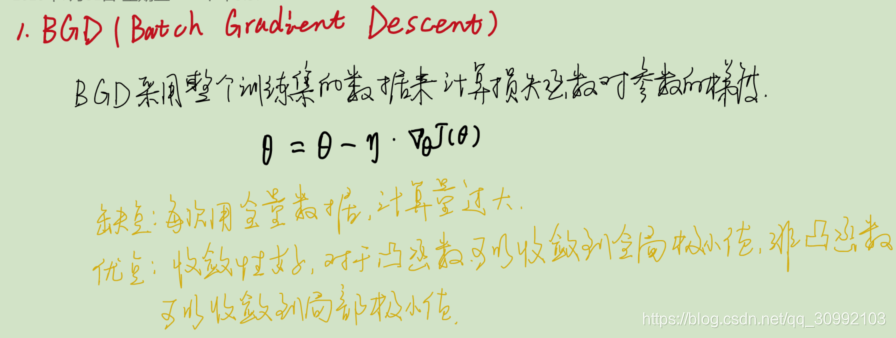 1. BGD (Batch Gradient Descent)
BGD采用整个训练集的数据来计算损失函数对参数的梯度.
θ = θ - η · ∇θJ(θ)
缺点: 每次用全量数据, 计算量过大.
优点: 收敛性好, 对于凸函数可以收敛到全局极小值, 非凸函数
可以收敛到局部极小值.
https://blog.csdn.net/qq_30992103